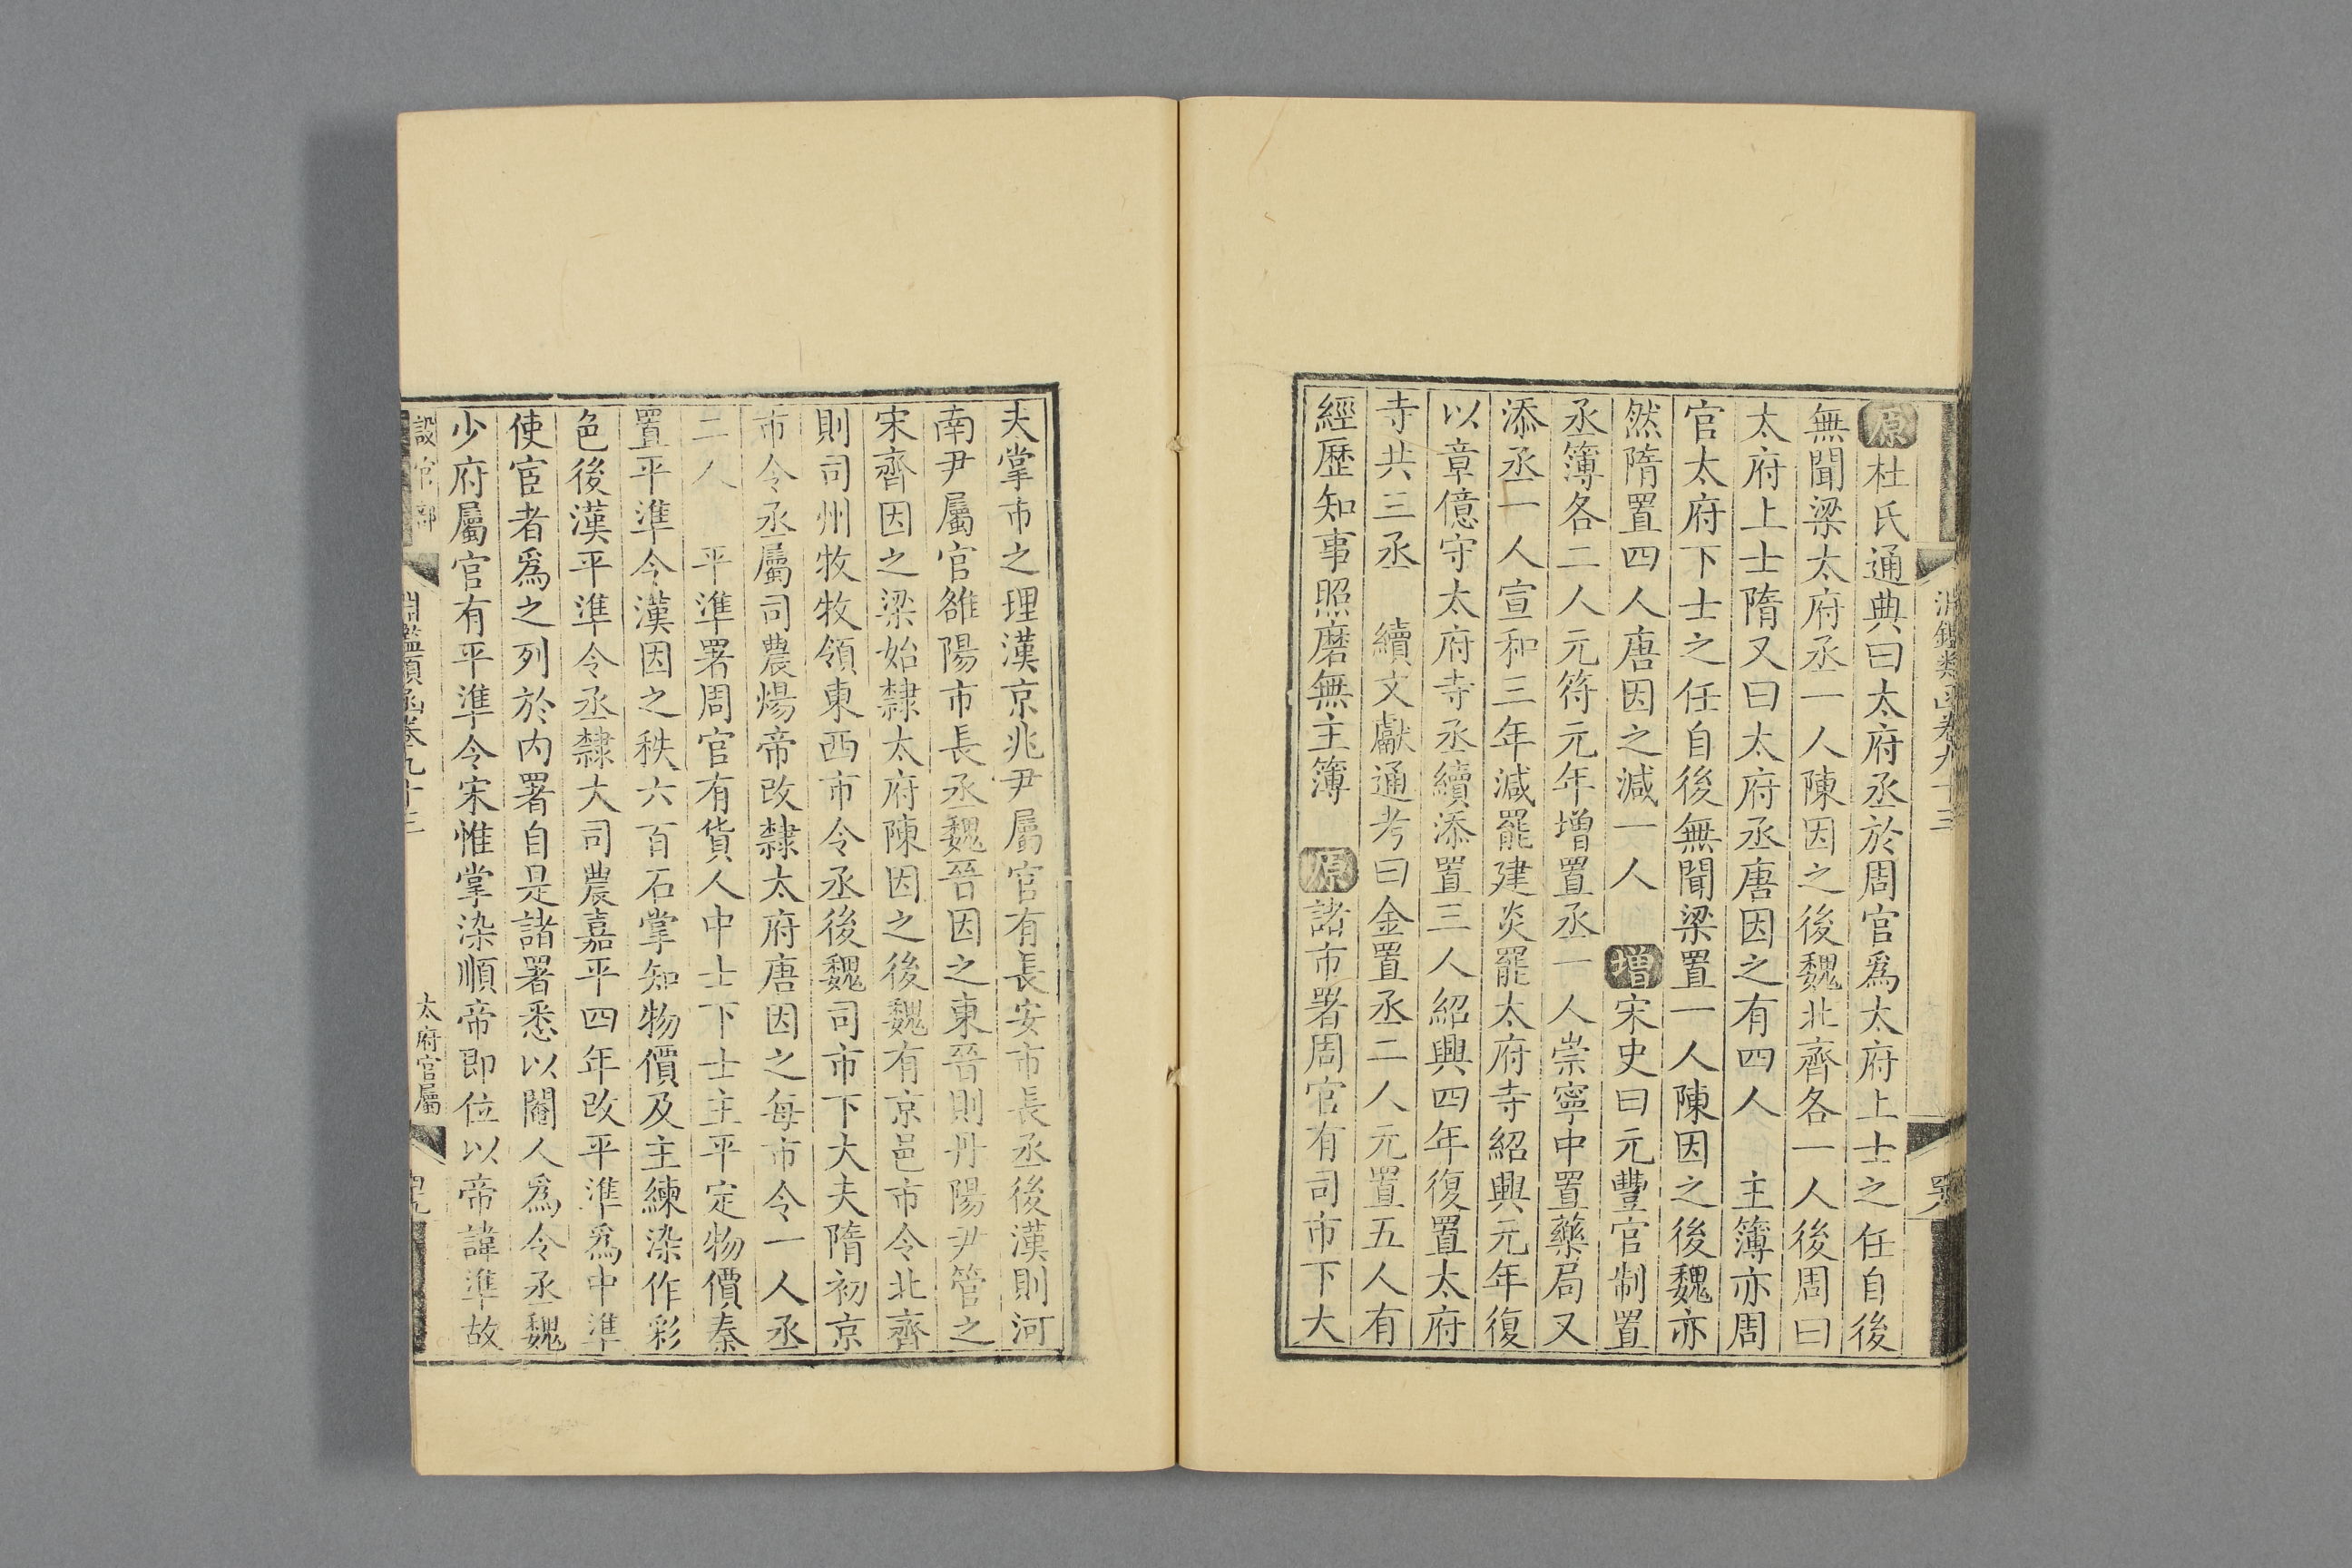 淵鑑類函卷九十三
原杜氏通典曰太府丞於周官爲太府上士之任自後
無聞梁太府丞一人陳因之後魏北齊各一人後周曰
太府上士隋又曰太府丞唐因之有四人　主簿亦周
官太府下士之任自後無聞梁置一人陳因之後魏亦
然隋置四人唐因之減一人　增宋史曰元豐官制置
丞簿各二人元符元年增置丞一人崇寧中置藥局又
添丞一人宣和三年減罷建炎罷太府寺紹興元年復
以章億守太府寺丞續添置三人紹興四年復置太府
寺共三丞　續文獻通考曰金置丞二人元置五人有
經歷知事照磨無主簿　原諸市署周官有司市下大
夫掌市之理漢京兆尹屬官有長安市長丞後漢則河
南尹屬官雒陽市長丞魏晉因之東晉則丹陽尹管之
宋齊因之梁始隸太府陳因之後魏有京邑市令北齊
則司州牧牧領東西市令丞後魏司市下大夫隋初京
市令丞屬司農煬帝改隸太府唐因之每市令一人丞
二人　平準署周官有貨人中士下士主平定物價秦
置平準令漢因之秩六百石掌知物價及主練染作彩
色後漢平準令丞隸大司農嘉平四年改平準爲中準
使宦者爲之列於內署自是諸署悉以閹人爲令丞魏
少府屬官有平準令宋惟掌染順帝即位以帝諱準故
設官部
淵鑑類函卷九十三
太府官屬